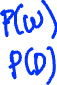 P(W)
P(D)